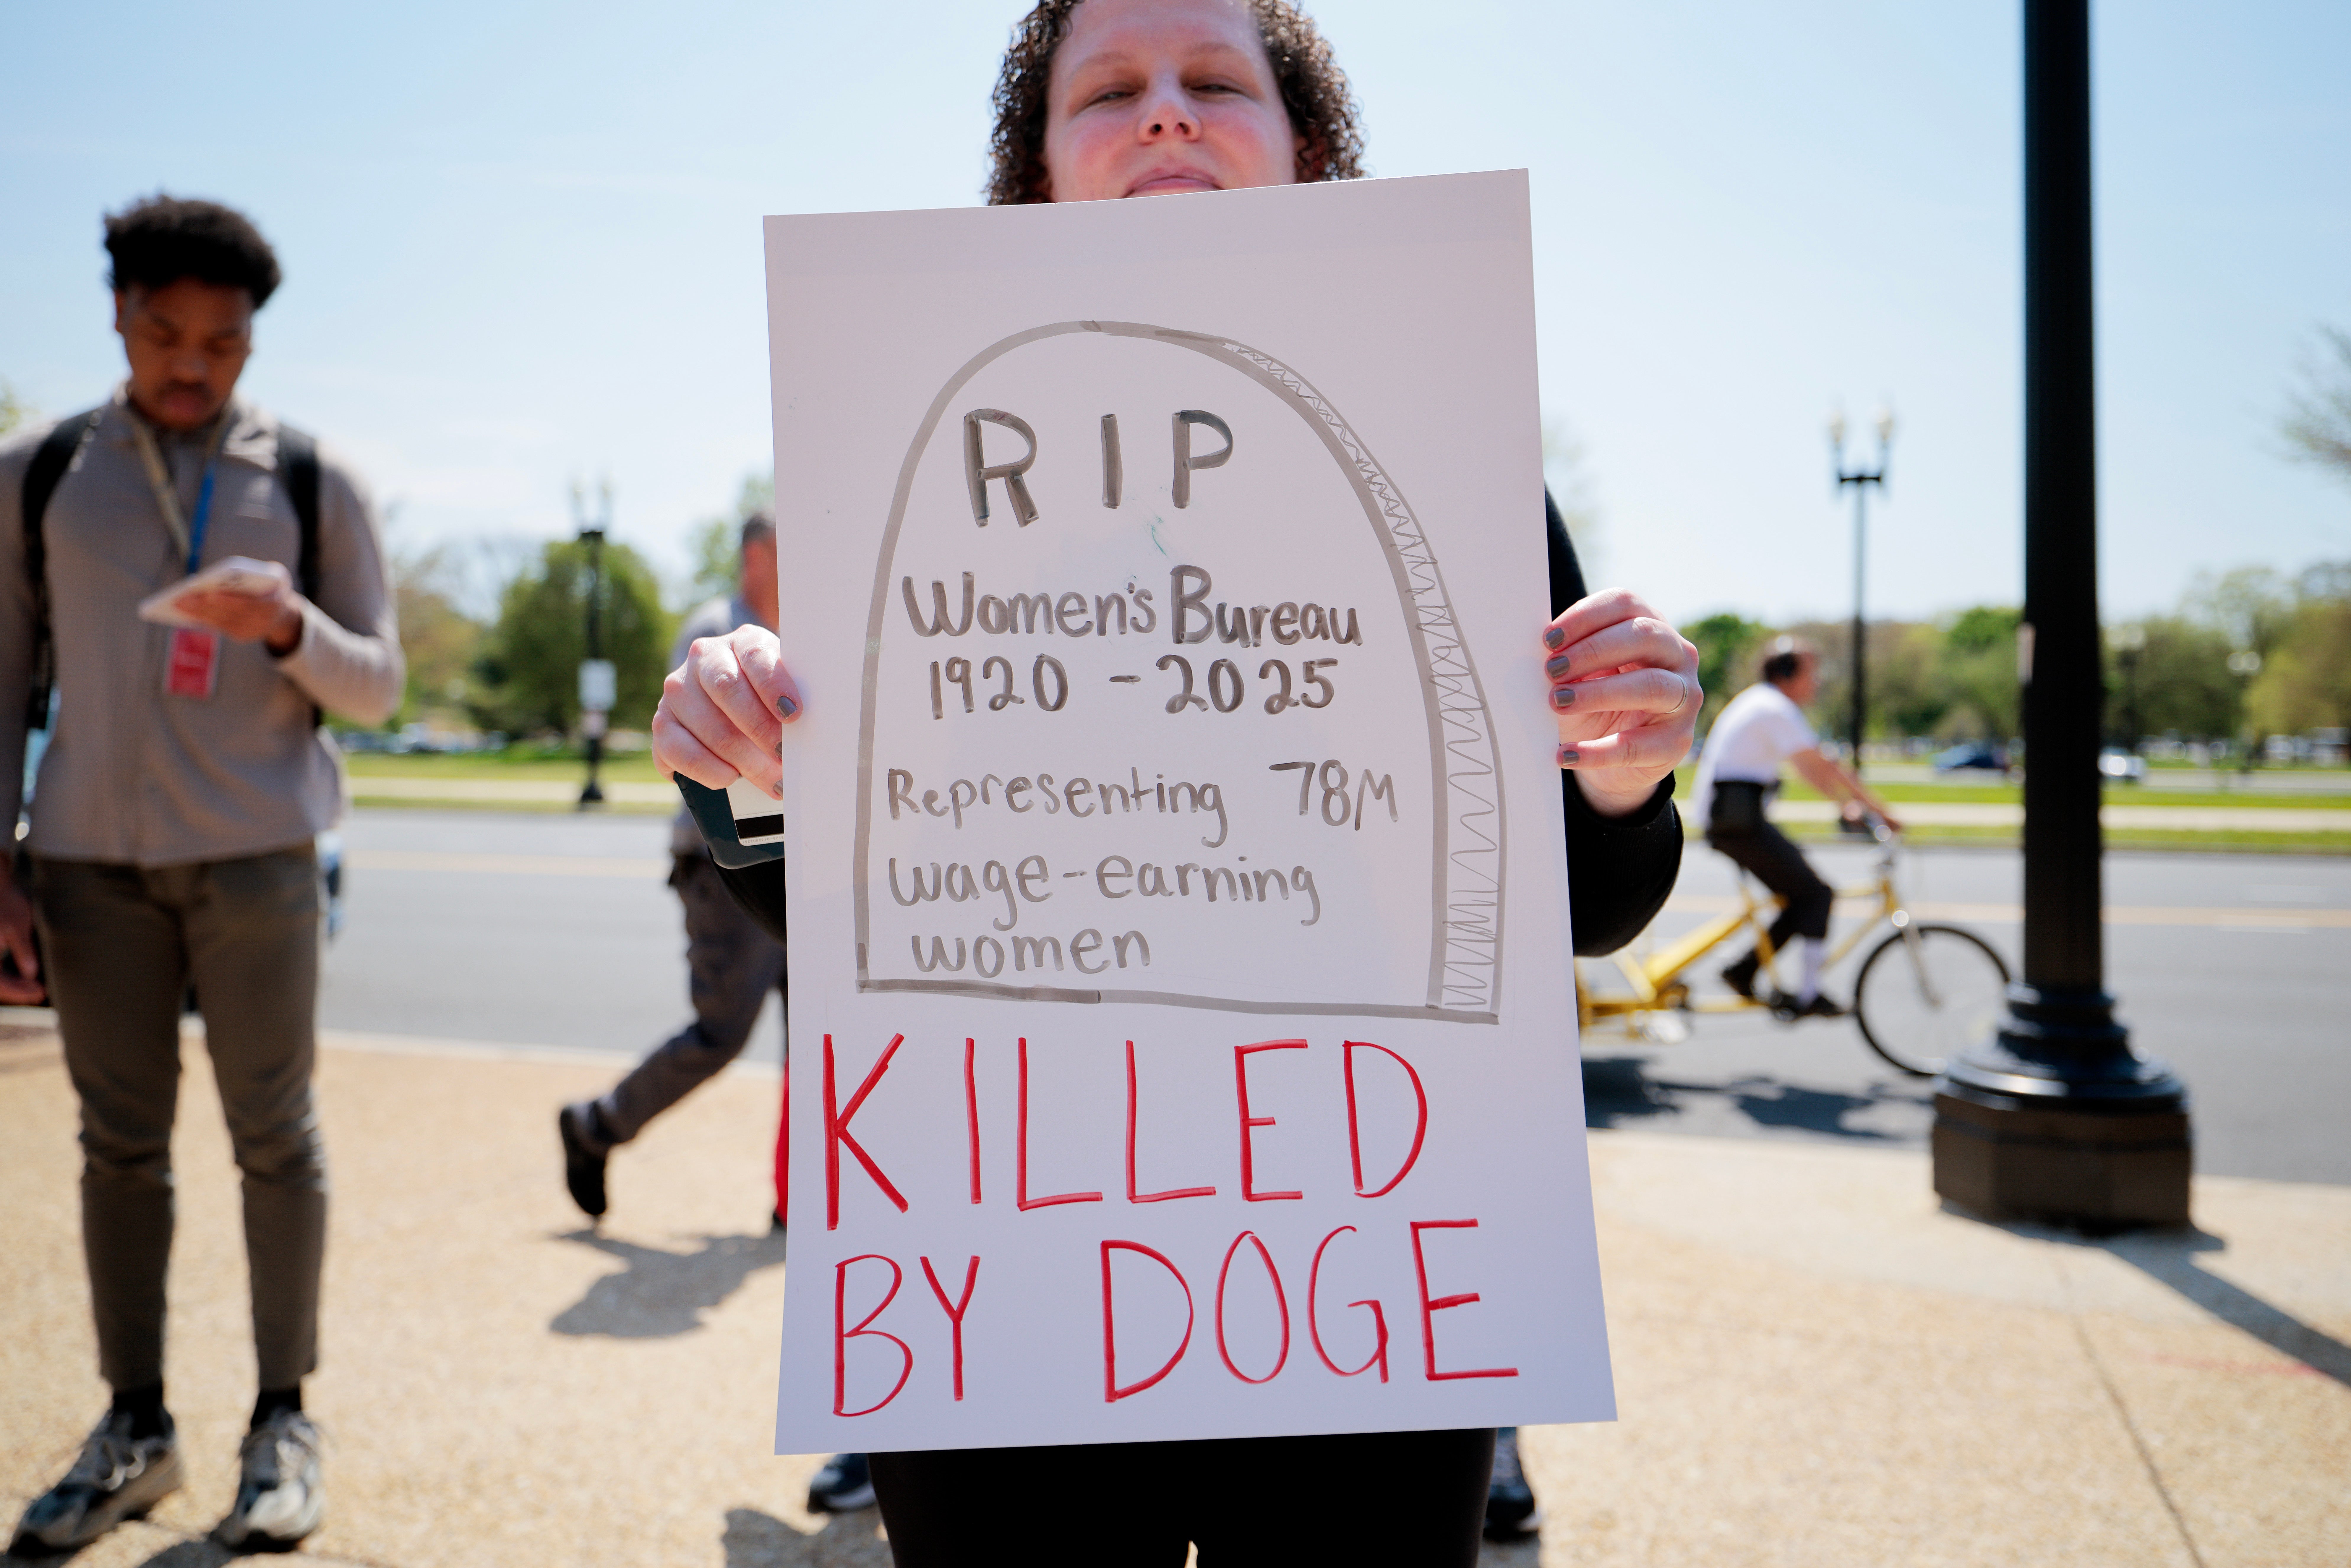 RIP
Women's Bureau
1920 - 2025
Representing 78M
wage-earning
women
KILLED
BY DOGE